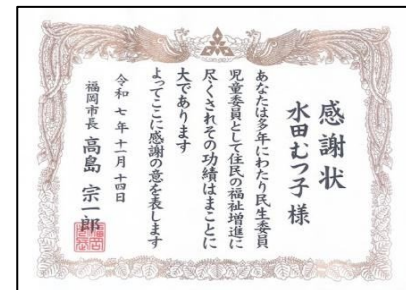 感謝状
水田むつ子 様
あなたは多年にわたり民生委員
児童委員として住民の福祉増進に
尽くされその功績はまことに
大であります
よってここに感謝の意を表します
令和七年十一月十四日
福岡市長 高島 宗一郎